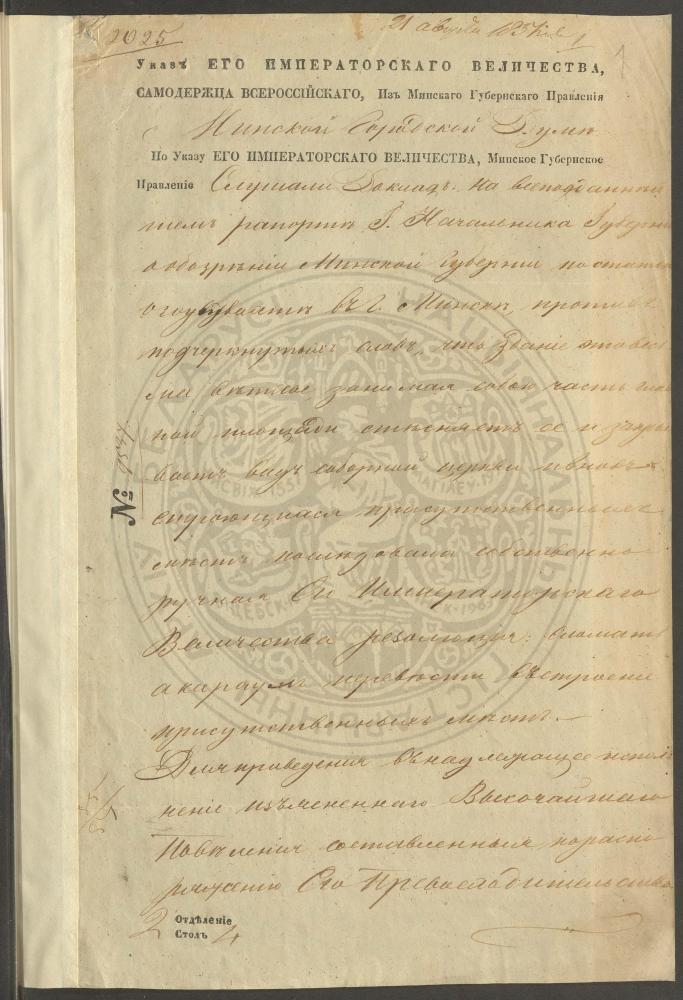 2025
21 августа 1857 года
1
Указъ ЕГО ИМПЕРАТОРСКАГО ВЕЛИЧЕСТВА,
САМОДЕРЖЦА ВСЕРОССІЙСКАГО, Изъ Минскаго Губернскаго Правленія
Минской Городской Думѣ
По Указу ЕГО ИМПЕРАТОРСКАГО ВЕЛИЧЕСТВА, Минское Губернское
Правленіе Слушали Докладъ. На всеподданнѣй
шемъ рапортѣ Г. Начальника Губерніи
о обозрѣніи Минской Губерніи по статьѣ
о гоубвахтѣ въ г. Минскѣ, противъ
подчеркнутыхъ словъ, что зданіе это весь
ма ветхое, занимая собою часть глав
ной площади стѣсняетъ ее и закры
ваетъ видъ соборной церкви и вновь
строющихся присутственныхъ
мѣстъ, послѣдовала собственно
ручная Его Императорскаго
Величества резолюція: сломать
а караулъ перевести въ строеніе
присутственныхъ мѣстъ.—
Для приведенія въ надлежащее испол
неніе изъясненнаго Высочайшаго
Повѣленія составленныя по распо
ряженію Его Превосходительства
№
2 Отдѣленіе
Столъ 4